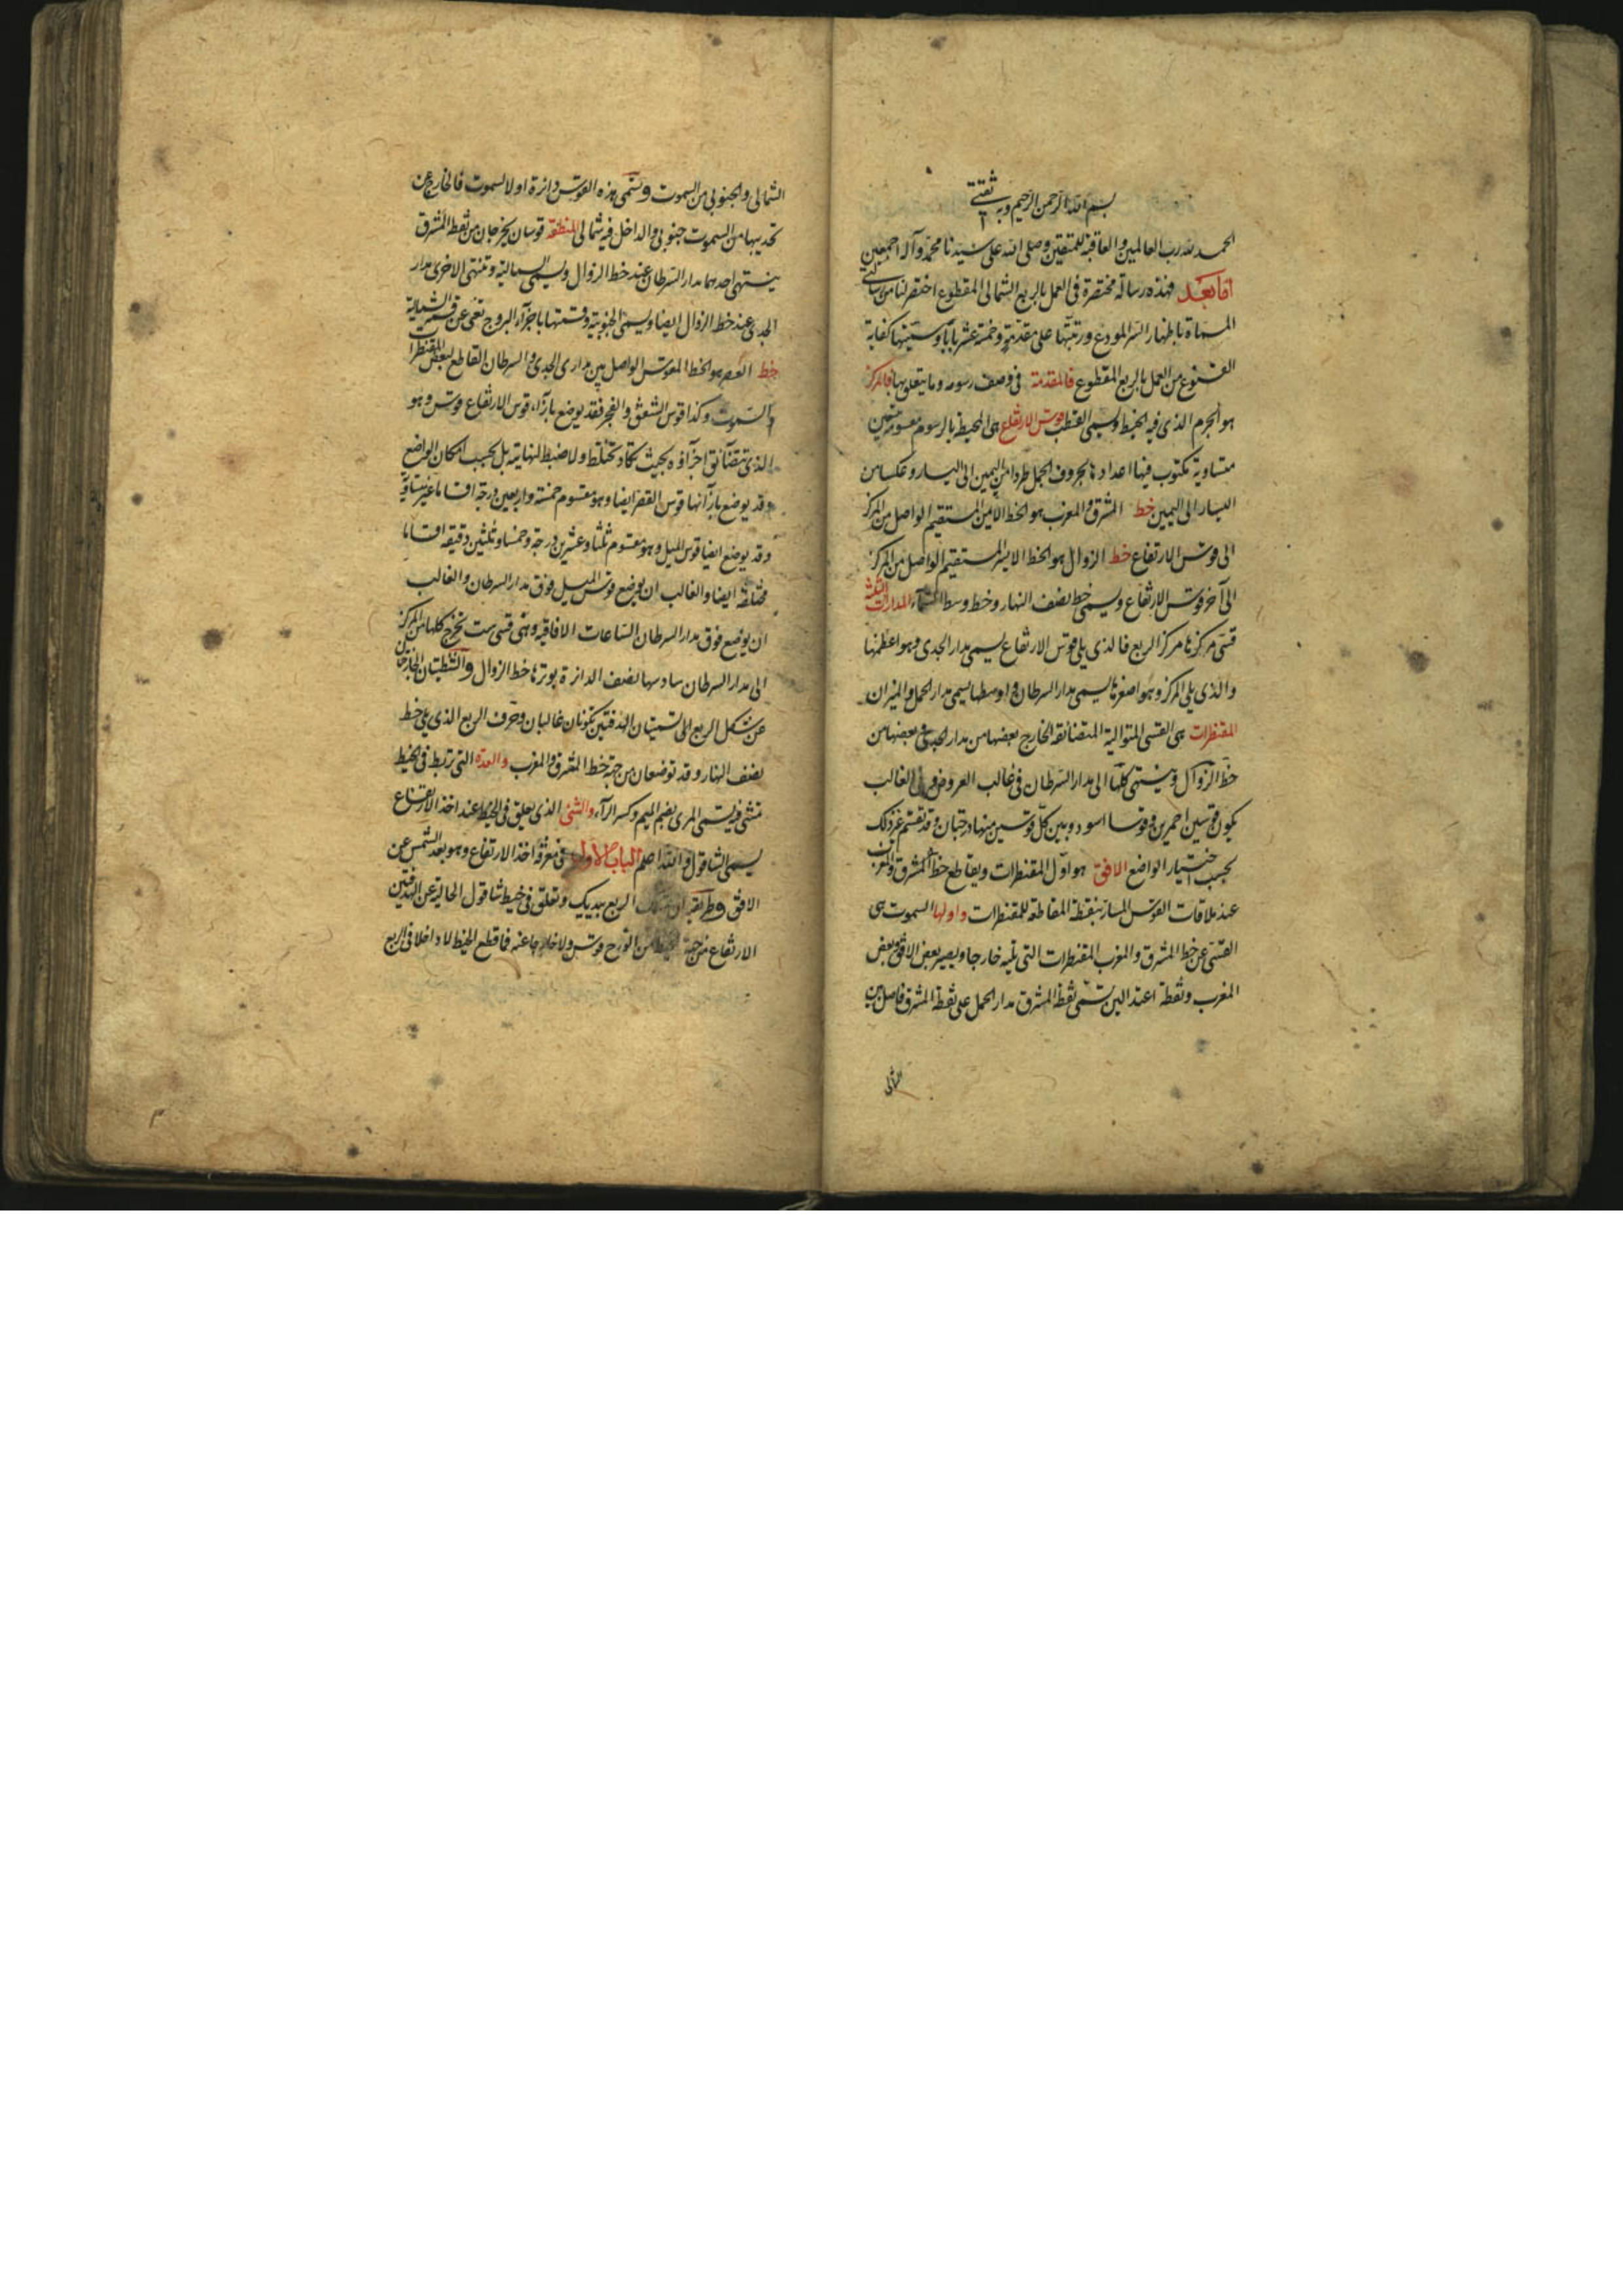 بسم الله الرحمن الرحيم وبه ثقتي
الحمد لله رب العالمين والعاقبة للمتقين وصلى الله على سيدنا محمد وآله اجمعين
اما بعد فهذه رسالة مختصرة في العمل بالربع الشمالي المقطوع اختصرتها من رسالتي
المسماة باظهار السر المودع ورتبتها على مقدمة وخمسة عشر بابا وسميتها كفاية
القنوع من العمل بالربع المقطوع فالمقدمة في وصف رسومه وما يتعلق بها فالمركز
هو الخرم الذي فيه الخيط ويسمى القطب قوس الارتفاع هي المحيط بالرسوم مقسومة تسعين
متساوية مكتوب فيها اعدادها بحروف الجمل طردا من اليمين الى اليسار وعكسا من
اليسار الى اليمين خط المشرق والمغرب هو الخط الايمن المستقيم الواصل من المركز
الى قوس الارتفاع خط الزوال هو الخط الايسر المستقيم الواصل من المركز
الى آخر قوس الارتفاع ويسمى خط نصف النهار وخط وسط السماء المدارات الثلثة
قسى مركزها مركز الربع فالذي يلي قوس الارتفاع يسمى مدار الجدي وهو اعظمها
والذي يلي المركز وهو اصغرها يسمى مدار السرطان واوسطها يسمى مدار الحمل والميزان
المقنطرات هي القسى المتوالية المتضائقة الخارج بعضها من مدار الجدي وبعضها من
خط الزوال وينتهي كلها الى مدار السرطان في غالب العروض والغالب
يكون قوسين احمرين وقوسا اسود وبين كل قوسين منها درجتان وقد تقسم غير ذلك
بحسب اختيار الواضع الافق هو اول المقنطرات ويقاطع خط المشرق والمغرب
عند ملاقات القوس المسار بنقطة المقاطعة للمقنطرات واولها السموت هي
القسى عن خط المشرق والمغرب المقنطرات التي يليه خارجا ويصير بعض الافق بعض
المغرب ونقطة اعتدالين تسمى نقطة المشرق مدار الحمل على نقطة المشرق فاصل بين
الشمالي والجنوبي من السموت وتسمى هذه القوس دائرة اول السموت فالخارج عن
تحديبها من السموت جنوبي والداخل فيه شمالي المنطقة قوسان يخرجان من نقطة المشرق
ينتهي احدهما مدار السرطان عند خط الزوال ويسمى الشمالية وتنتهي الاخرى مدار
الجدي عند خط الزوال ايضا ويسمى الجنوبية وقسمتها باجزاء البروج تغني عن قسمة الشمالية
خط العصر هو الخط المقوس الواصل بين مداري الجدي والسرطان القاطع لبعض المقنطرات
والسموت وكذا قوس الشفق والفجر فقد يوضع بازاء قوس الارتفاع قوس وهو
الذي تتضائق اجزاؤه بحيث تكاد تختلط ولا ضبط لنهايته بل بحسب امكان الواضع
وقد يوضع بازائها قوس القصر ايضا وهو مقسوم خمسة واربعين درجة اقساما غير متساوية
وقد يوضع ايضا قوس الميل وهو مقسوم ثلثا وعشرين درجة وخمسا وثلثين دقيقة اقساما
مختلفة ايضا والغالب ان يوضع قوس الميل فوق مدار السرطان والغالب
ان يوضع فوق مدار السرطان الساعات الافاقية وهي قسى ست تخرج كلها من المركز
الى مدار السرطان سادسها نصف الدائرة يوترها خط الزوال والشطيتان الخارجتان
عن شكل الربع التي تسميتان الهدفتين تكونان غالبان وحرف الربع الذي يلي خط
نصف النهار وقد توضعان من جهة خط المشرق والمغرب والعقدة التي تربط في الخيط
تنثني فيه تسمى المري بضم الميم وكسر الراء والشئ الذي يعلق في الخيط عند اخذ الارتفاع
يسمى الشاقول والله اعلم الباب الاول في معرفة اخذ الارتفاع وهو بعد الشمس عن
الافق وطريقه ان تمسك الربع بيديك وتعلق في خيط شاقول الخالية عن الهدفتين
الارتفاع من جهة قوس ولا خارجا عنه فما قطع الخيط لا داخلا في الربع